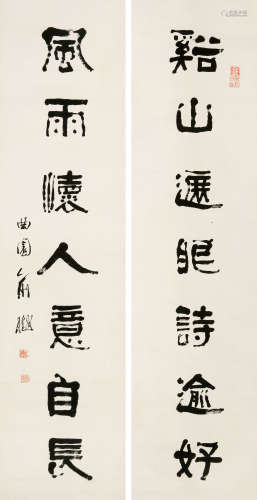 谿山遯眂詩逾好
風雨懷人意自長
曲園俞樾